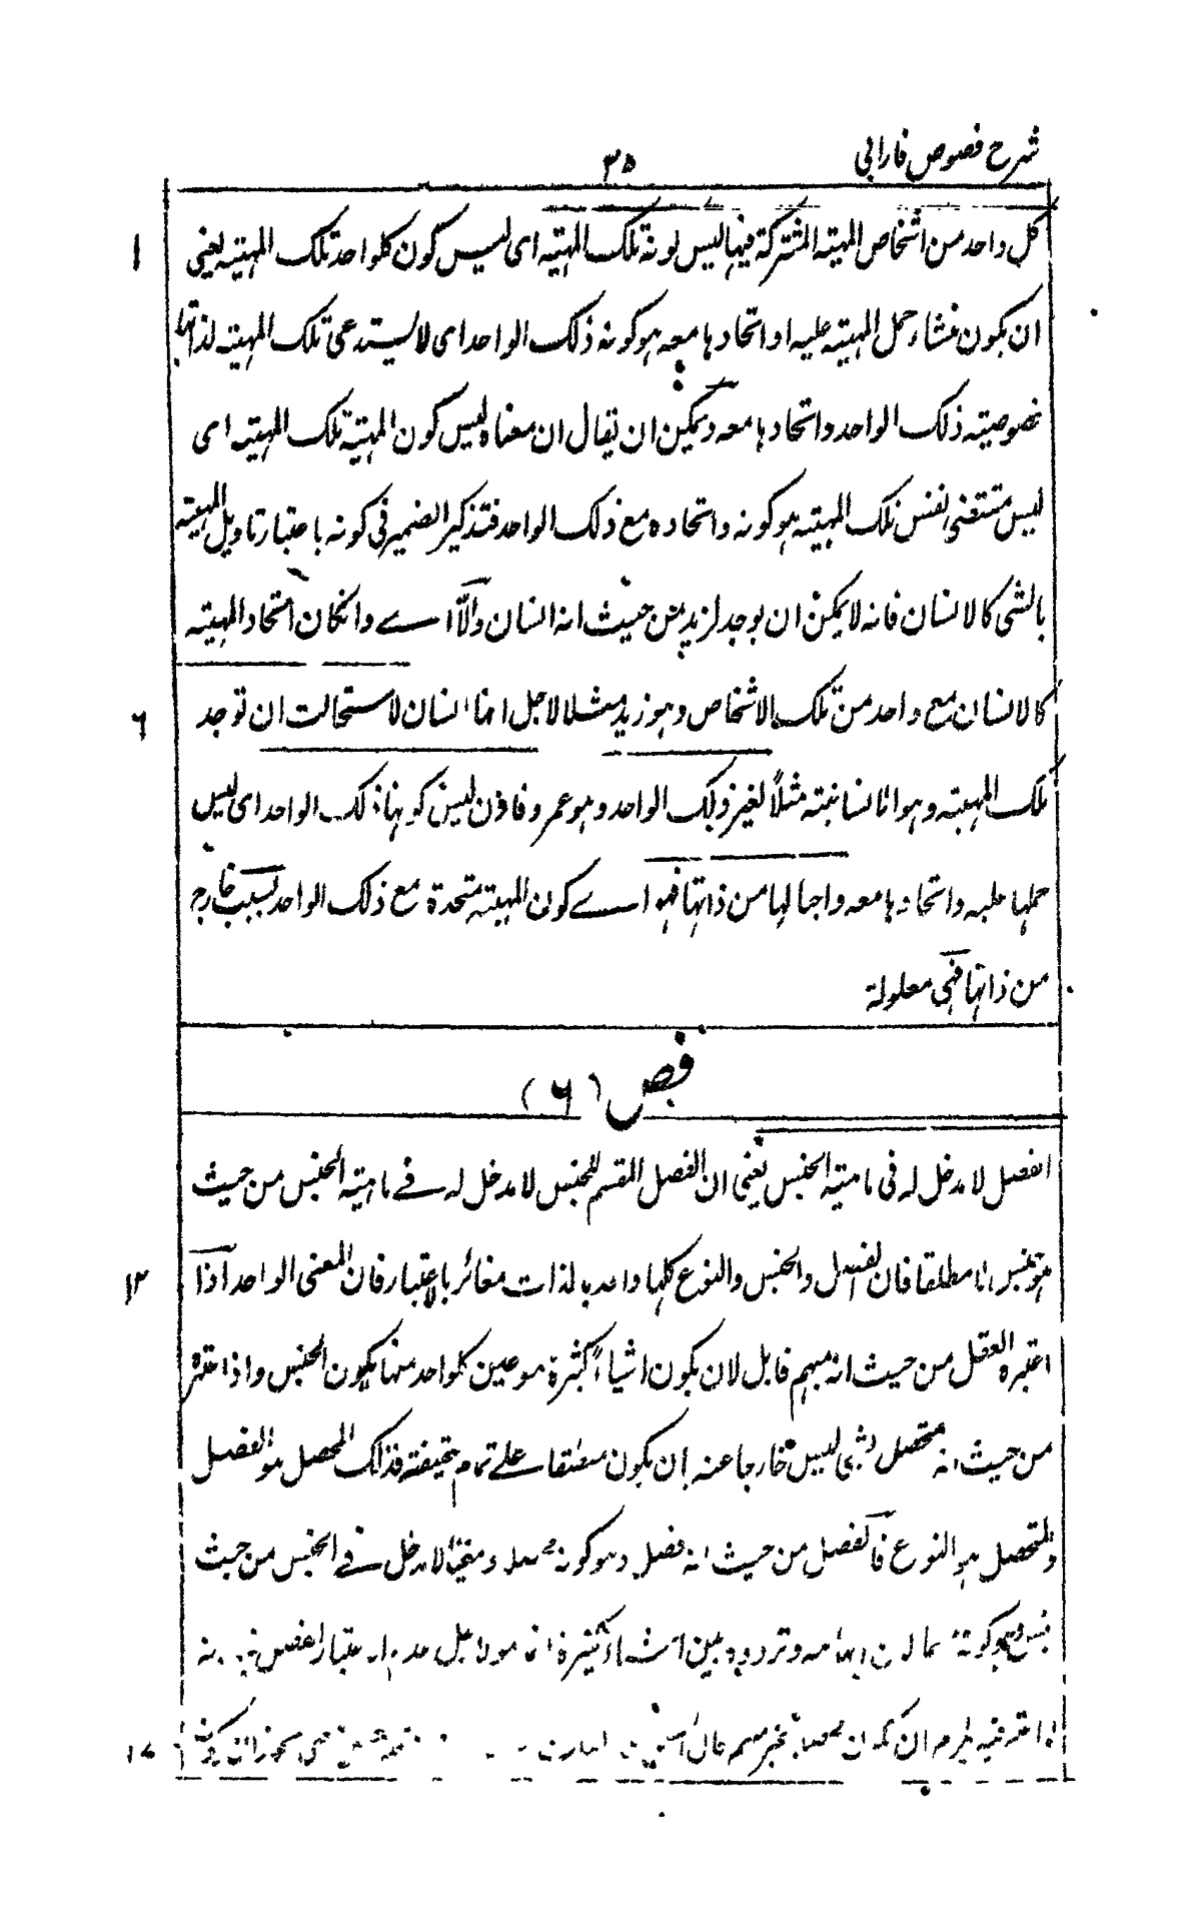 شرح فصوص فارابی
۳۵
کل واحد من اشخاص المهیته المشترکة فیها لیس لونة تلک المهیته ای لیس کون کلواحد تلک المهیته یعنی
۱
ان یکون منشاء حمل المهیته علیه او اتحادها معه هو کونه ذلک الواحد ای لا یستدعی تلک المهیته لذاتها
خصوصیته ذلک الواحد واتحادها معه ویمکن ان یقال ان معناه لیس کون المهیته تلک المهیته ای
لیس مقتضی نفس تلک المهیته هو کونه واتحاده مع ذلک الواحد فتذکیر الضمیر فی کونه باعتبار تاویل المهیته
بالشی کالانسان فانه لا یمکن ان یوجد لزید من حیث انه انسان والا اے وانکان اتحاد المهیته
کالانسان مع واحد من تلک الاشخاص وهو زید مثلا لاجل انها انسان لاستحالت ان توجد
۶
تلک المهیته وهو الانسانیته مثلاً لغیر ذلک الواحد وهو عمرو فاذن لیس کونها ذلک الواحد ای لیس
حملها علیه واتحادها معه واجا لها من ذاتها فهو اے کون المهیته متحدة مع ذلک الواحد بسبب خارج
من ذاتها فهی معلولة
فص (۶)
الفصل لا مدخل له فی ماهیته الجنس یعنی ان الفصل المقسم للجنس لا مدخل له فے ماهیته الجنس من حیث
هو جنس لا مطلقا فان الفصل والجنس والنوع کلها واحد بالذات مغائر بالاعتبار فان المعنی الواحد اذا
۱۲
اعتبره العقل من حیث انه مبهم قابل لان یکون اشیاء کثیرة هو عین کلواحد منها یکون الجنس واذا اعتبر
من حیث انه متحصل بشی لیس خارجا عنه بان یکون منطبقا علے تمام حقیقته فذلک المحصل هو الفصل
والمتحصل هو النوع فالفصل من حیث انه فصل وهو کونه محصلا ومعینا لا مدخل فے الجنس من حیث
جنس وهو کونه وتردده بین اشیاء کثیرة
۱۷